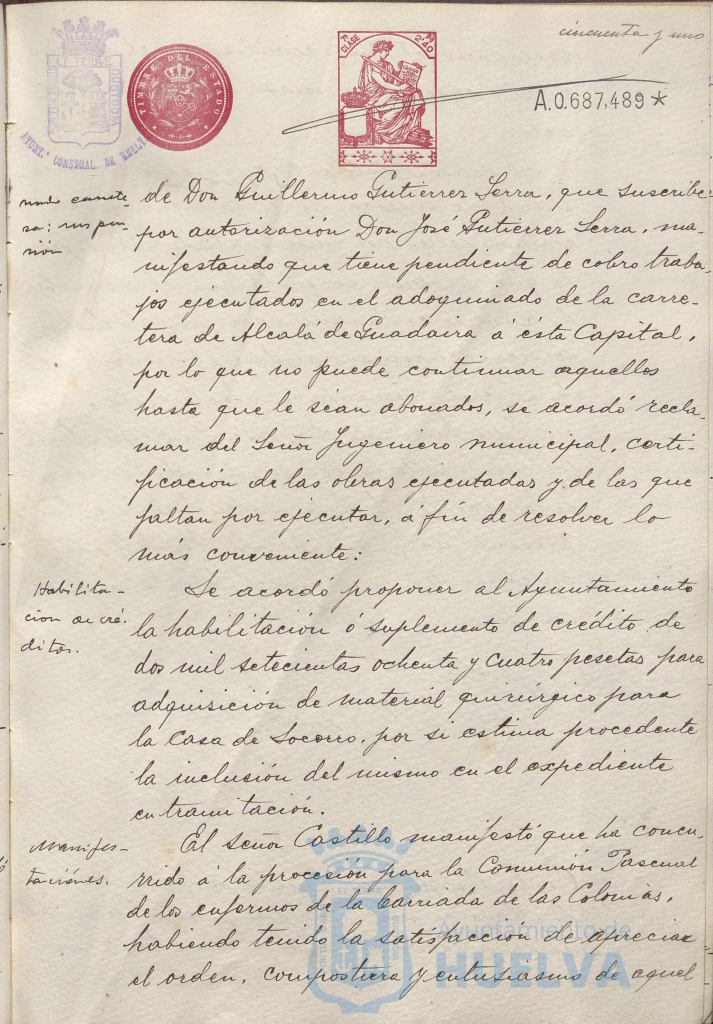 cincuenta y uno
7ª CLASE 2'40
TIMBRE DEL ESTADO
CUSTODIA
AYUNT. CONSTNAL. DE HUELVA
A.0.687,489*
de Don Guillermo Gutierrez Serra, que suscribe
por autorización Don José Gutierrez Serra, ma-
nifestando que tiene pendiente de cobro traba-
jos ejecutados en el adoquinado de la carre-
tera de Alcalá de Guadaira á ésta Capital,
por lo que no puede continuar aquellos
hasta que le sean abonados, se acordó recla-
mar del Señor Ingeniero municipal, certi-
ficación de las obras ejecutadas y de las que
faltan por ejecutar, á fin de resolver lo
más conveniente:
Habilita-
cion de cré-
ditos.
Se acordó proponer al Ayuntamiento
la habilitación ó suplemento de crédito de
dos mil setecientas ochenta y cuatro pesetas para
adquisición de material quirúrgico para
la Casa de Socorro, por si estima procedente
la inclusión del mismo en el expediente
en tramitación.
Manifes-
taciones.
El señor Castillo manifestó que ha concu-
rrido á la procesión para la Comunión Pascual
de los enfermos de la barriada de las Colonias,
habiendo tenido la satisfacción de apreciar
el orden, compostura y entusiasmo de aquel
Ayuntamiento de
HUELVA